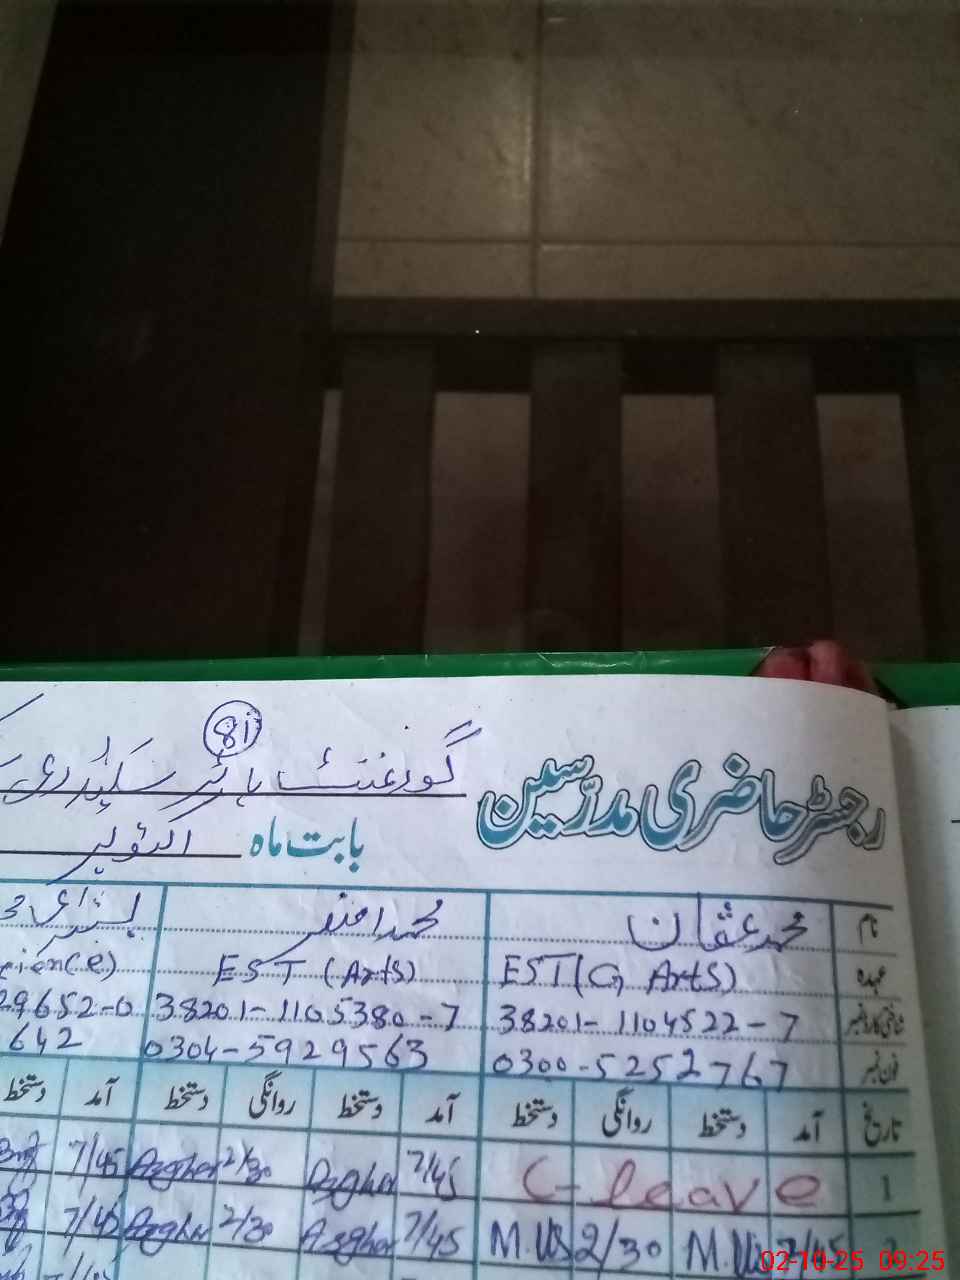 81
گورنمنٹ ہائر سیکنڈری
رجسٹر حاضری مدرّسین
بابت ماہ اکتوبر
نام محمد عثمان محمد اصغر
عہدہ EST (G, Arts) EST (Arts)
شناختی کارڈ نمبر 38201-1104522-7 38201-1105380-7 29652-0
فون نمبر 0300-5252767 0304-5929563 642
تاریخ آمد دستخط روانگی دستخط آمد دستخط روانگی دستخط آمد دستخط
1 C-leave 7/45 Asghar 2/30 Asghar 7/45
2/30 7/45 Asghar 2/30 Asghar 7/45
02-10-25 09:25